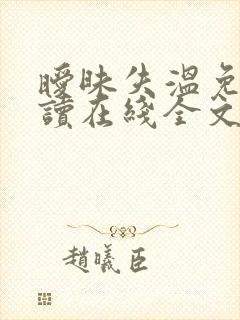 曖昧失溫免
讀在綫全文
趙曦臣